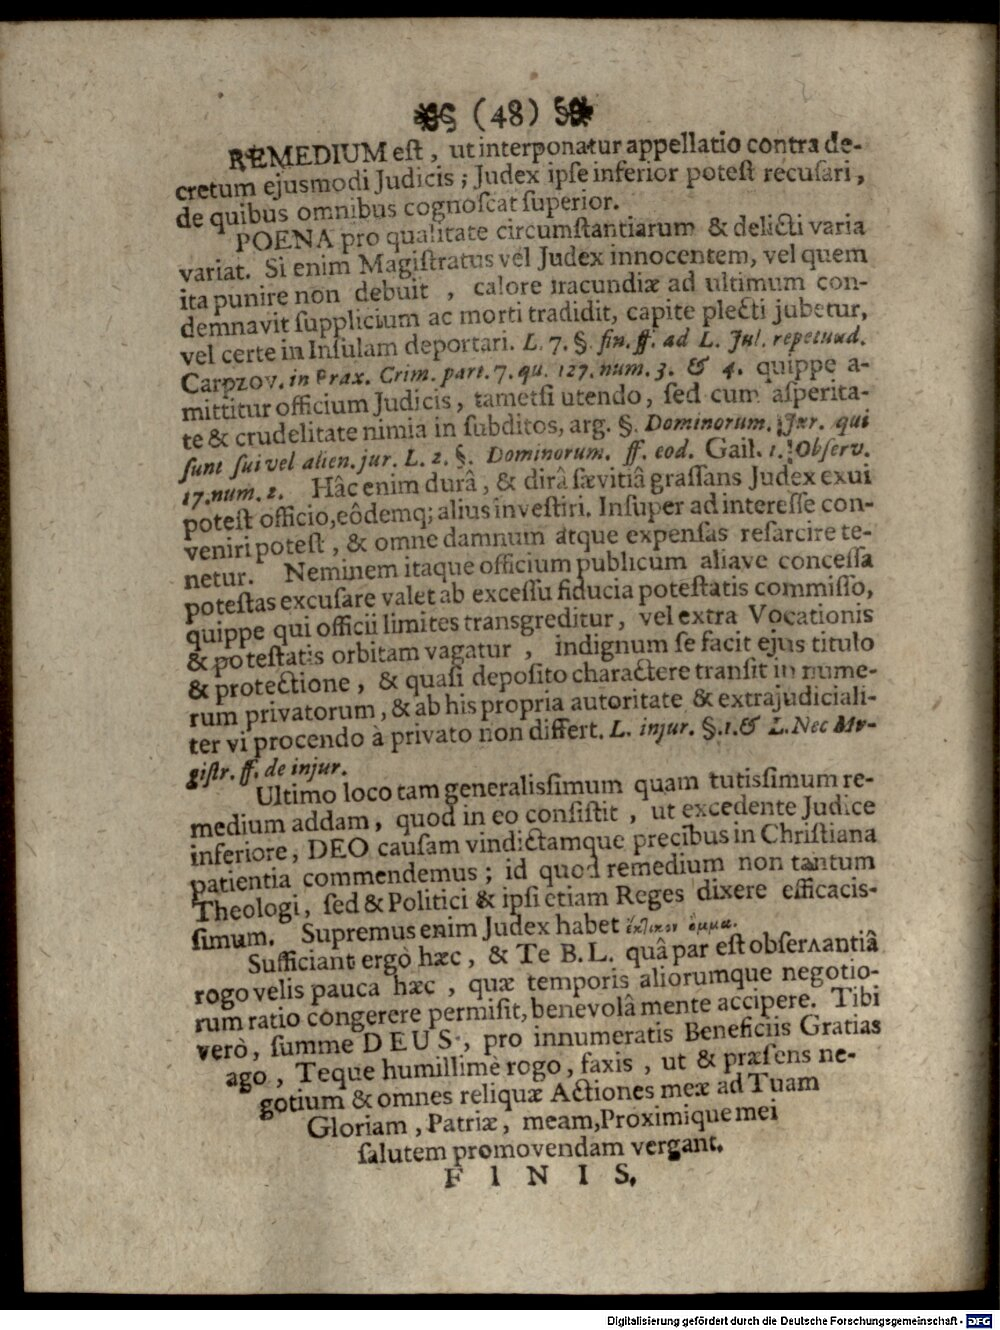 (48)
REMEDIUM eſt, ut interponatur appellatio contra de-
cretum ejusmodi Judicis; Judex ipſe inferior poteſt recuſari,
de quibus omnibus cognoſcat ſuperior.
POENA pro qualitate circumſtantiarum & delicti varia
variat. Si enim Magiſtratus vel Judex innocentem, vel quem
ita punire non debuit, calore iracundiæ ad ultimum con-
demnavit ſupplicium ac morti tradidit, capite plecti jubetur,
vel certe in Inſulam deportari. L. 7. §. fin. ff. ad L. Jul. repetund.
Carpzov. in Prax. Crim. part. 7. qu. 127. num. 3. & 4. quippe a-
mittitur officium Judicis, tametſi utendo, ſed cum aſperita-
te & crudelitate nimia in ſubditos, arg. §. Dominorum. Jur. qui
ſunt ſui vel alien. jur. L. 2. §. Dominorum. ff. eod. Gail. 1. Obſerv.
17. num. 2. Hâc enim durâ, & dirâ ſævitiâ graſſans Judex exui
poteſt officio, eôdemq; alius inveſtiri. Inſuper ad intereſſe con-
veniri poteſt, & omne damnum atque expenſas reſarcire te-
netur. Neminem itaque officium publicum aliave conceſſa
poteſtas excuſare valet ab exceſſu fiducia poteſtatis commiſſo,
quippe qui officii limites transgreditur, vel extra Vocationis
& poteſtatis orbitam vagatur, indignum ſe facit ejus titulo
& protectione, & quaſi depoſito charactere tranſit in nume-
rum privatorum, & ab his propria autoritate & extrajudiciali-
ter vi procendo à privato non differt. L. injur. §. 1. & L. Nec Ma-
giſtr. ff. de injur.
Ultimo loco tam generalisſimum quam tutisſimum re-
medium addam, quod in eo conſiſtit, ut excedente Judice
inferiore, DEO cauſam vindictamque precibus in Chriſtiana
patientia commendemus; id quod remedium non tantum
Theologi, ſed & Politici & ipſi etiam Reges dixere efficacis-
ſimum. Supremus enim Judex habet ἔκδικον ὄμμα.
Sufficiant ergò hæc, & Te B. L. quâ par eſt obſervantiâ
rogo velis pauca hæc, quæ temporis aliorumque negotio-
rum ratio congerere permiſit, benevolâ mente accipere. Tibi
verò, ſumme DEUS, pro innumeratis Beneficiis Gratias
ago, Teque humillimè rogo, faxis, ut & præſens ne-
gotium & omnes reliquæ Actiones meæ ad Tuam
Gloriam, Patriæ, meam, Proximique mei
ſalutem promovendam vergant.
FINIS.
Digitalisierung gefördert durch die Deutsche Forschungsgemeinschaft - DFG